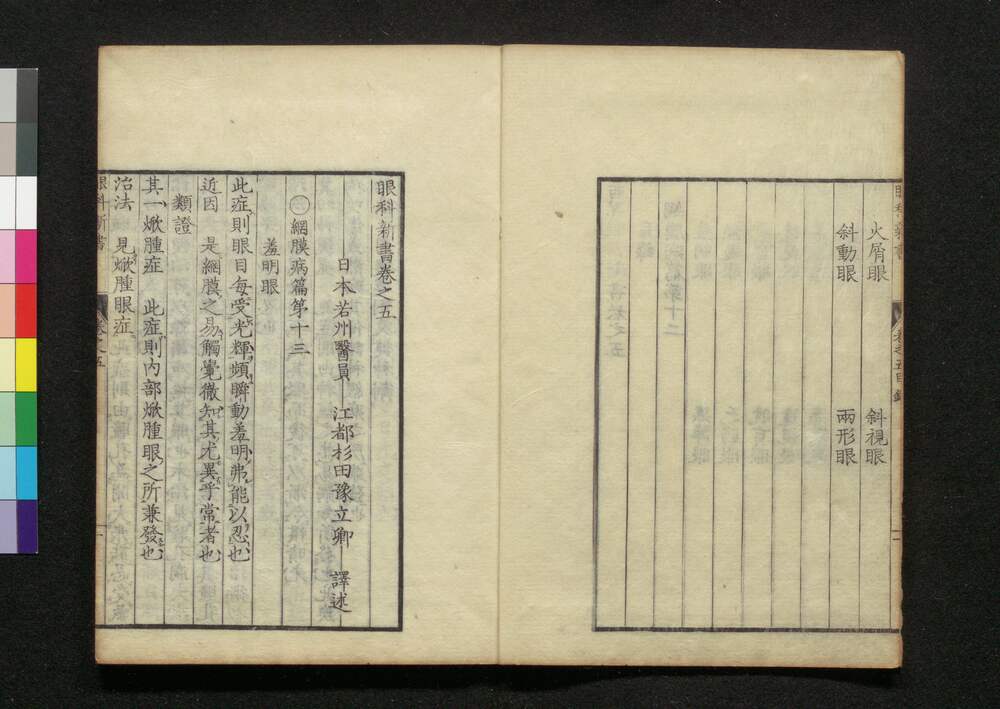 火屑眼 斜視眼
斜動眼 兩形眼
眼科新書卷之五
日本若州醫員 江都杉田豫立卿 譯述
㊂網膜病篇第十三
羞明眼
此症則眼目每受光輝頻瞬動羞明弗能以忍也
近因 是網膜之易觸覺徹知其尤異乎常者也
類證
其一焮腫症 此症則内部焮腫眼之所兼發也
治法 見焮腫眼症
眼科新書 卷之五